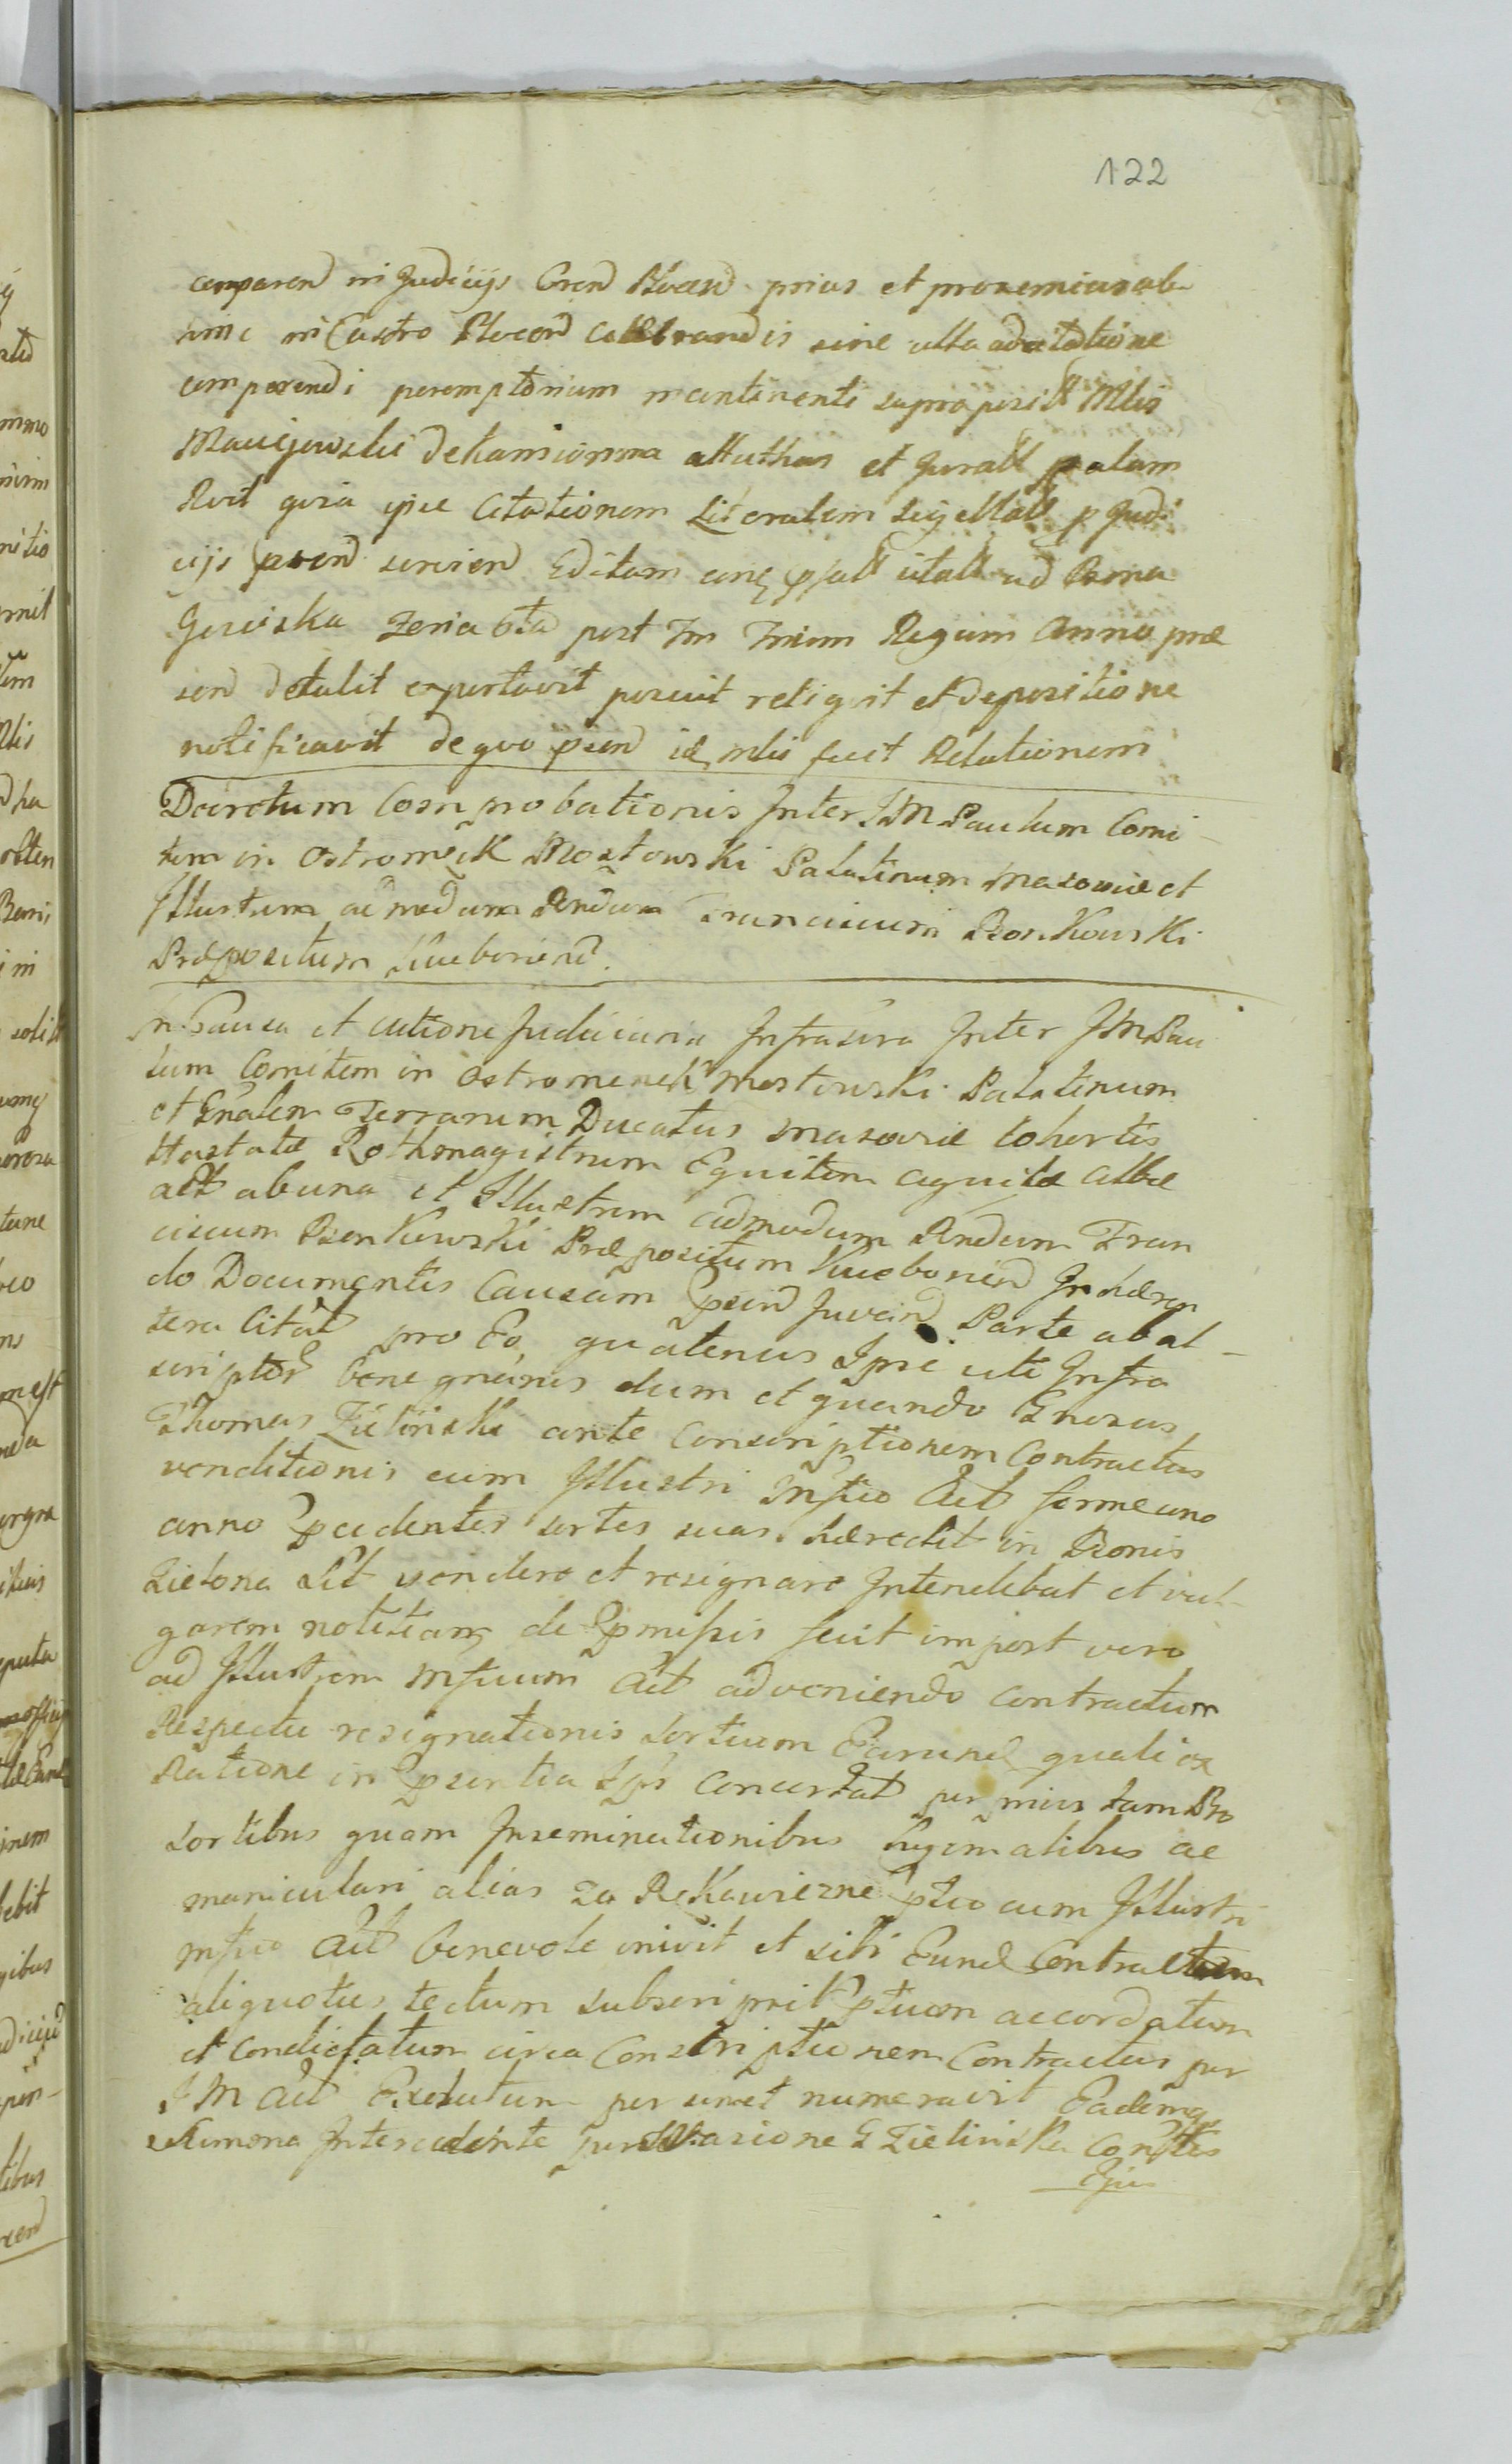 122
comparend in Judicijs Cren Plocen prius et proxemius ab
hinc in Castro Plocen Celebrandis sine ulla adcitatione
comparendi peremptorium incontinenti Mlis
Maciejowski de et Jurat palam
Rvit quia ipse Citationem Literalem Sigellat p Judi
cijs pvend servien Editam citat ad Bona
feria 6ta post Fm Trium Regum Anno præ
send detulit exportavit posuit reliquit et depositione
notificavit de quo psend id, mlis fecit Relationem
Decretum Comprobationis Inter JM Paulum Comi-
tem in Ostromęck Mostowski Palatinum Masoviæ et
Illustrem admodum Rndum Franciscum Bonkowski
Præpositum Kuchoriend.
In Causa et actione Judiciaria Infrascra Inter JM Pau
lum Comitem in Ostromenck Mostowski Palatinum
et Gnalem Terrarum Ducatus Masoviæ Cohortis
Hastatæ Rothmagistrum Equitem aquilæ albæ
act ab una et Illustrem admodum Rndum Fran
ciscum Bonkowski Præpositum Inhæren
do Documentis Causam psend Juvand Parte ab al-
tera Citat pro Eo, quatenus Ipse uti Infra
scriptor bene gnarus dum et quando Gnosus
Thomas Zielinski ante Conscriptionem Contractus
venditionis cum Illustri Mfico Act ferme uno
anno pcedenter sortes suas hæredit in Bonis
Zielona Sit vendere et resignare Intendebat et vul-
garem notitiam de pmissis fecit im post vero
ad Illustrem Mficum Act adveniendo contractum
Respectu resignationis Sortium Earund quali ex
Ratione in psentia Ips Concertat per prius tam Pro
Sortibus quam Inseminationibus hyemalibus ac
maniculari alias za Rekawiczne ptio cum Illustri
mfico Act benevole inivit et sibi Eund Contractum
aliquoties lectum subscripsit Ptium accordatum
et condictatum circa Conscriptionem Contractus per
JM Act Exolutum per semet numeravit Eademq
Intercedente persvasione G Zielinska Consortis
Ejus